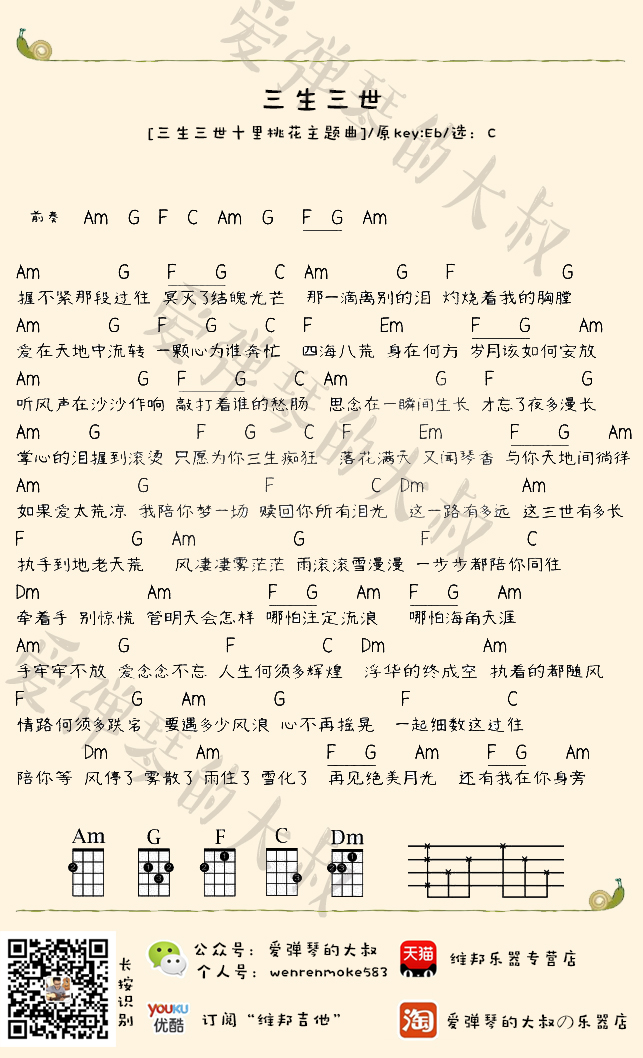 三生三世
[三生三世十里桃花主题曲]/原key:Eb/选：C
前奏 Am G F C Am G F G Am
Am G F G C Am G F G
握不紧那段过往 冥灭了结魄光芒 那一滴离别的泪 灼烧着我的胸膛
Am G F G C F Em F G Am
爱在天地中流转 一颗心为谁奔忙 四海八荒 身在何方 岁月该如何安放
Am G F G C Am G F G
听风声在沙沙作响 敲打着谁的愁肠 思念在一瞬间生长 才忘了夜多漫长
Am G F G C F Em F G Am
掌心的泪握到滚烫 只愿为你三生痴狂 落花满天 又闻琴香 与你天地间徜徉
Am G F C Dm Am
如果爱太荒凉 我陪你梦一场 赎回你所有泪光 这一路有多远 这三世有多长
F G Am G F C
执手到地老天荒 风凄凄雾茫茫 雨滚滚雪漫漫 一步步都陪你同往
Dm Am F G Am F G Am
牵着手 别惊慌 管明天会怎样 哪怕注定流浪 哪怕海角天涯
Am G F C Dm Am
手牢牢不放 爱念念不忘 人生何须多辉煌 浮华的终成空 执着的都随风
F G Am G F C
情路何须多跌宕 要遇多少风浪 心不再摇晃 一起细数这过往
Dm Am F G Am F G Am
陪你等 风停了 雾散了 雨住了 雪化了 再见绝美月光 还有我在你身旁
Am G F C Dm
2 1 2 3 2 1 3 2 3 1
长按识别
公众号：爱弹琴的大叔
个人号：wenrenmoke583
天猫
维邦乐器专营店
YOUKU
优酷
订阅“维邦吉他”
淘
爱弹琴的大叔の乐器店
爱弹琴的大叔
爱弹琴的大叔
爱弹琴的大叔